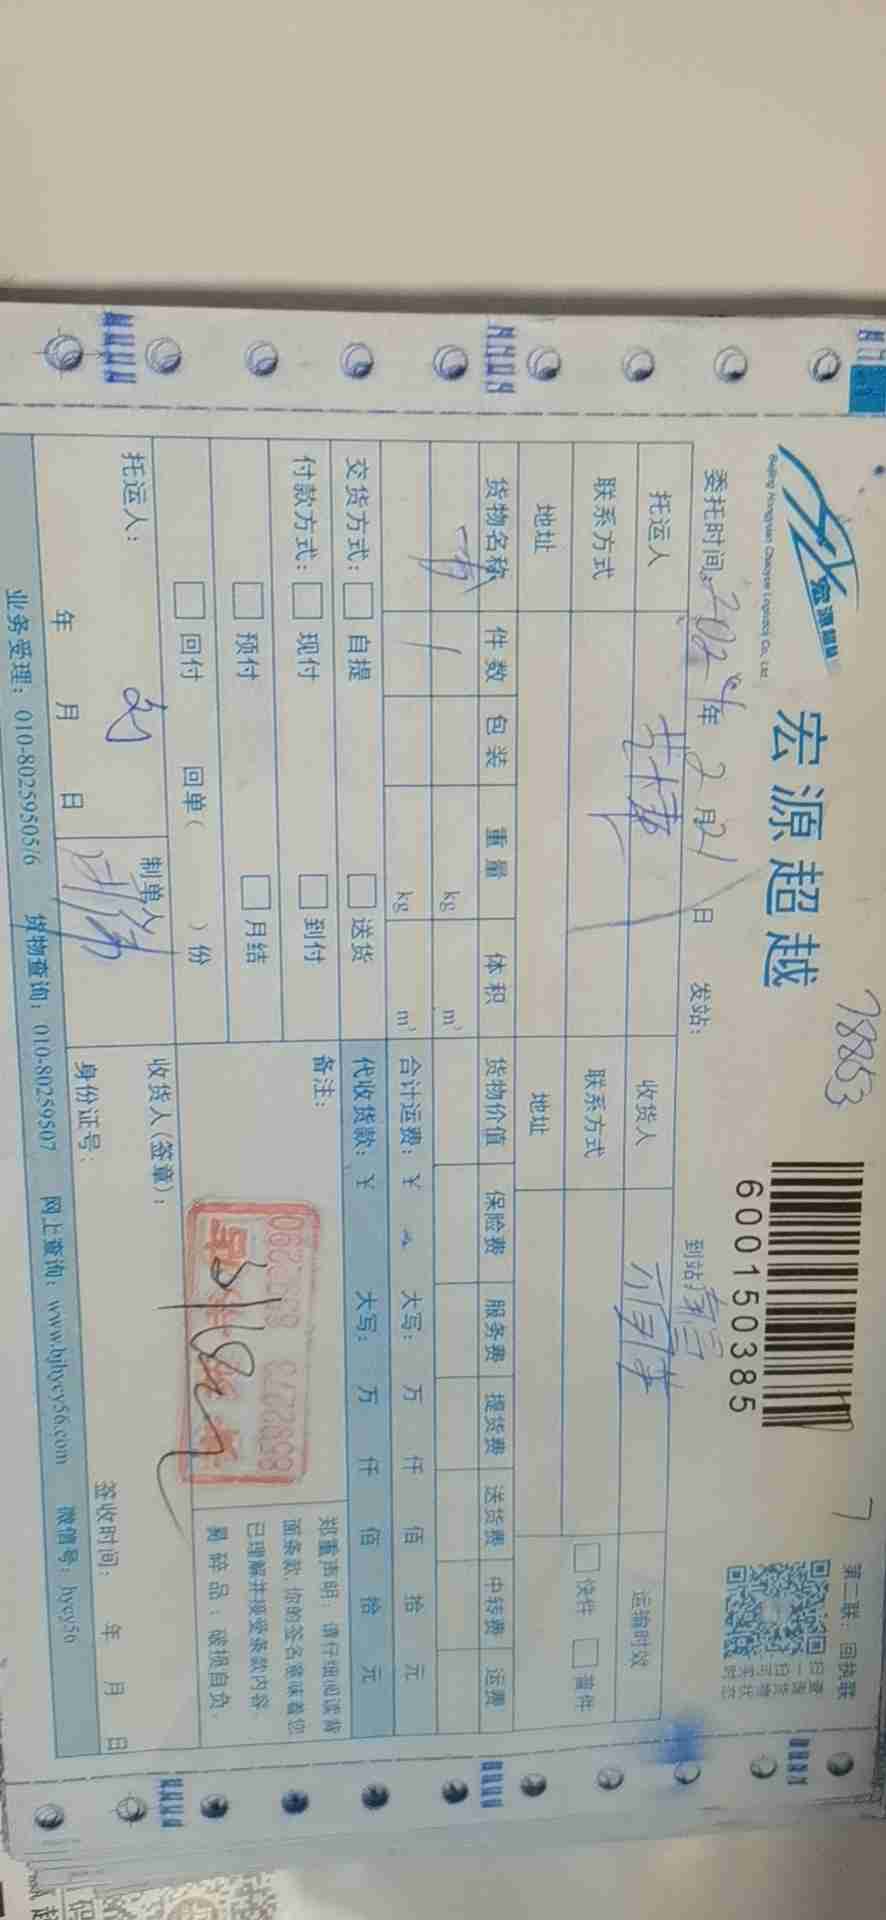 宏源超越
Beijing Hongyuan Chaoyue Logistics Co., Ltd.
宏源超越
78853
7
6000150385
第二联：回执联
委托时间：2024年2月21日 发站： 到站：
托运人 收货人 运输时效
联系方式 联系方式 快件 普件
地址 地址
货物名称 件数 包装 重量 体积 货物价值 保险费 服务费 提货费 送货费 中转费 运费
1 kg m³
kg m³ 合计运费：¥ 大写： 万 仟 佰 拾 元
交货方式： 自提 送货 代收货款：¥ 大写： 万 仟 佰 拾 元
付款方式： 现付 到付 备注：
预付 月结
回付 回单（ ）份
郑重声明：请仔细阅读背
面条款，你的签名意味着您
已理解并接受条款内容。
易碎品：破损自负。
托运人： 制单人 收货人（签章）：
年 月 日 身份证号： 签收时间： 年 月 日
业务受理：010-80259505/6 货物查询：010-80259507 网上查询：www.bjhycy56.com 微信号：hycy56